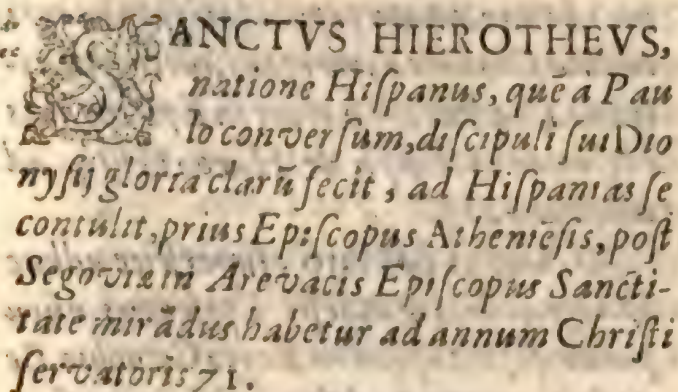 SANCTVS HIEROTHEVS,
natione Hiſpanus, quē à Pau
lo converſum, diſcipuli ſui Dio
nyſij gloria clarū fecit, ad Hiſpanias ſe
contulit, prius Epiſcopus Atheniēſis, poſt
Segoviæ in Arevacis Epiſcopus Sancti-
tate mirādus habetur ad annum Chriſti
ſervatoris 71.